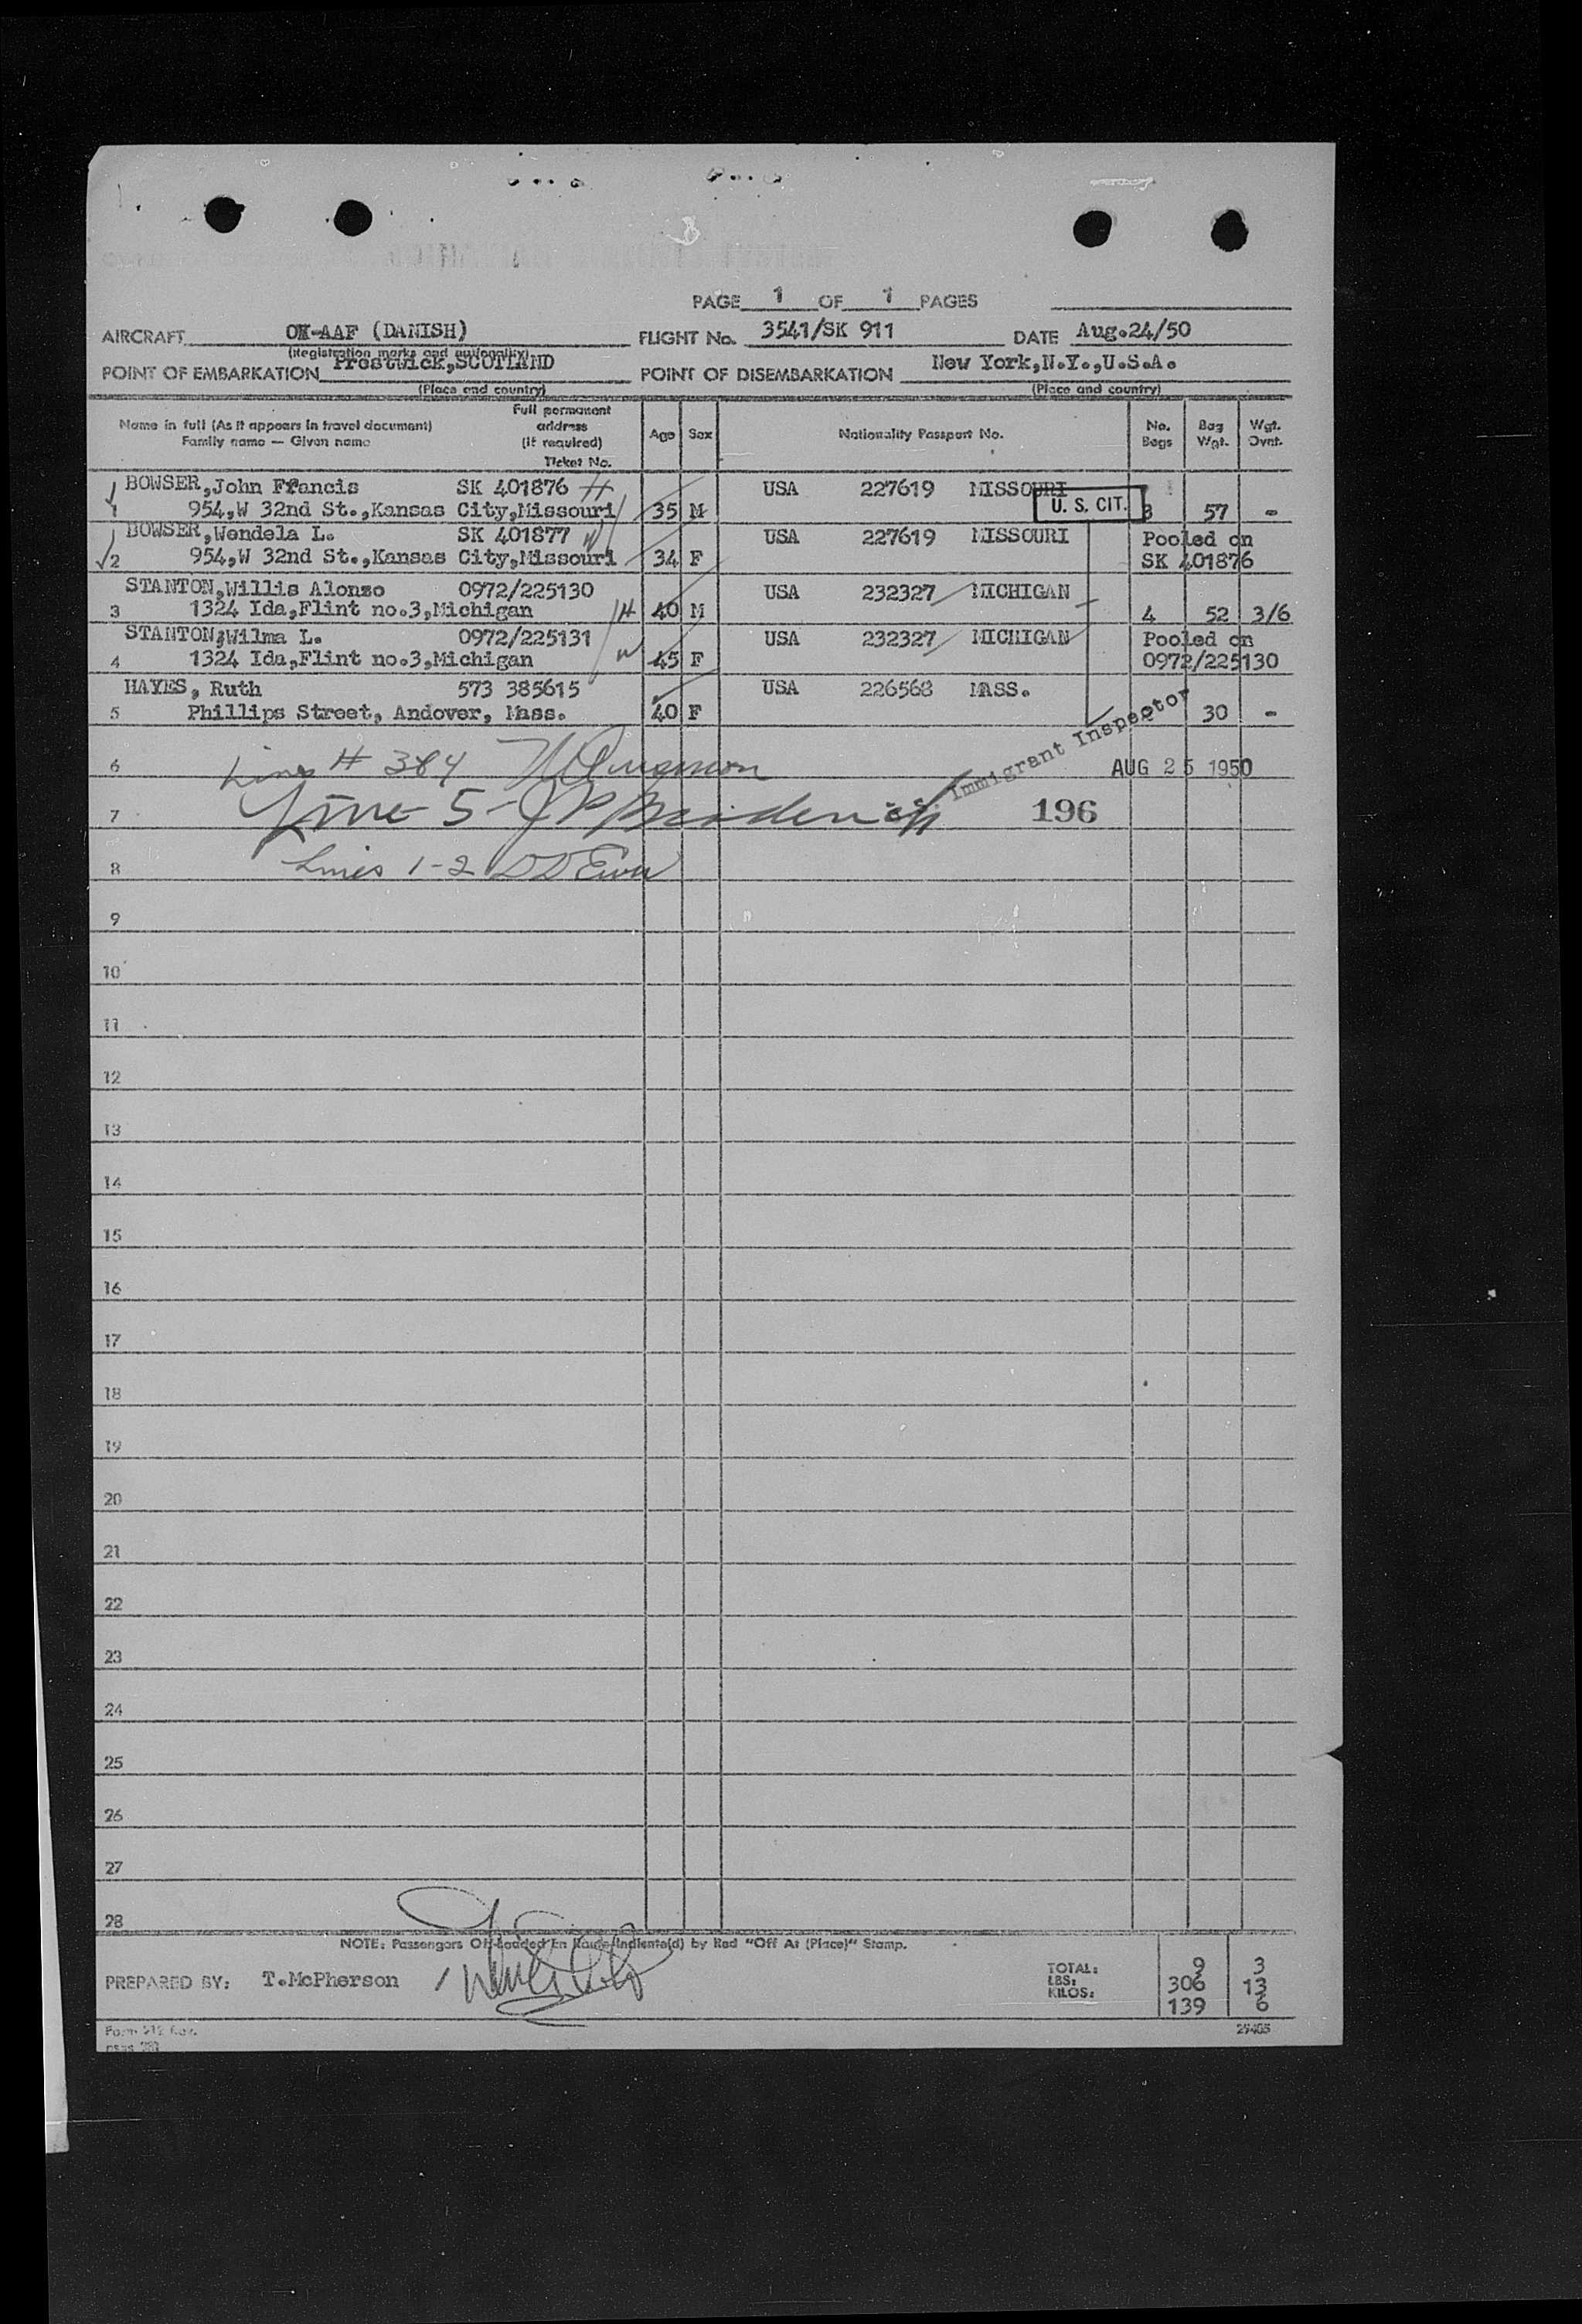 PAGE 1 OF 1 PAGES
AIRCRAFT OY-AAF (DANISH) FLIGHT No. 3541/SK 911 DATE Aug.24/50
(Registration marks and nationality)
POINT OF EMBARKATION Prestwick,SCOTLAND POINT OF DISEMBARKATION New York,N.Y.,U.S.A.
(Place and country) (Place and country)
Name in full (As it appears in travel document) Family name — Given name Full permanent address (if required) Ticket No. Age Sex Nationality Passport No. No. Bags Bag Wgt. Wgt. Ovnt.
BOWSER,John Ffancis SK 401876 H USA 227619 MISSOURI
1 954,W 32nd St.,Kansas City,Missouri 35 M U. S. CIT. 3 57 -
BOWSER,Wendela L. SK 401877 W USA 227619 MISSOURI Pooled on
2 954,W 32nd St.,Kansas City,Missouri 34 F SK 401876
STANTON,Willis Alonzo 0972/225130 USA 232327 MICHIGAN
3 1324 Ida,Flint no.3,Michigan H 40 M 4 52 3/6
STANTON,Wilma L. 0972/225131 USA 232327 MICHIGAN Pooled on
4 1324 Ida,Flint no.3,Michigan W 45 F 0972/225130
HAYES, Ruth 573 385615 USA 226568 MASS.
5 Phillips Street, Andover, Mass. 40 F 2 30 -
Immigrant Inspector
6 Lines # 3&4 AUG 25 1950
7 Line 5 - 196
8 Lines 1-2
9
10
11
12
13
14
15
16
17
18
19
20
21
22
23
24
25
26
27
28
NOTE: Passengers Off-Loaded En Route Indicate(d) by Red "Off At (Place)" Stamp.
PREPARED BY: T.McPherson
TOTAL: 9 3
LBS: 306 13
KILOS: 139 6
Form 512 Rev.
27405